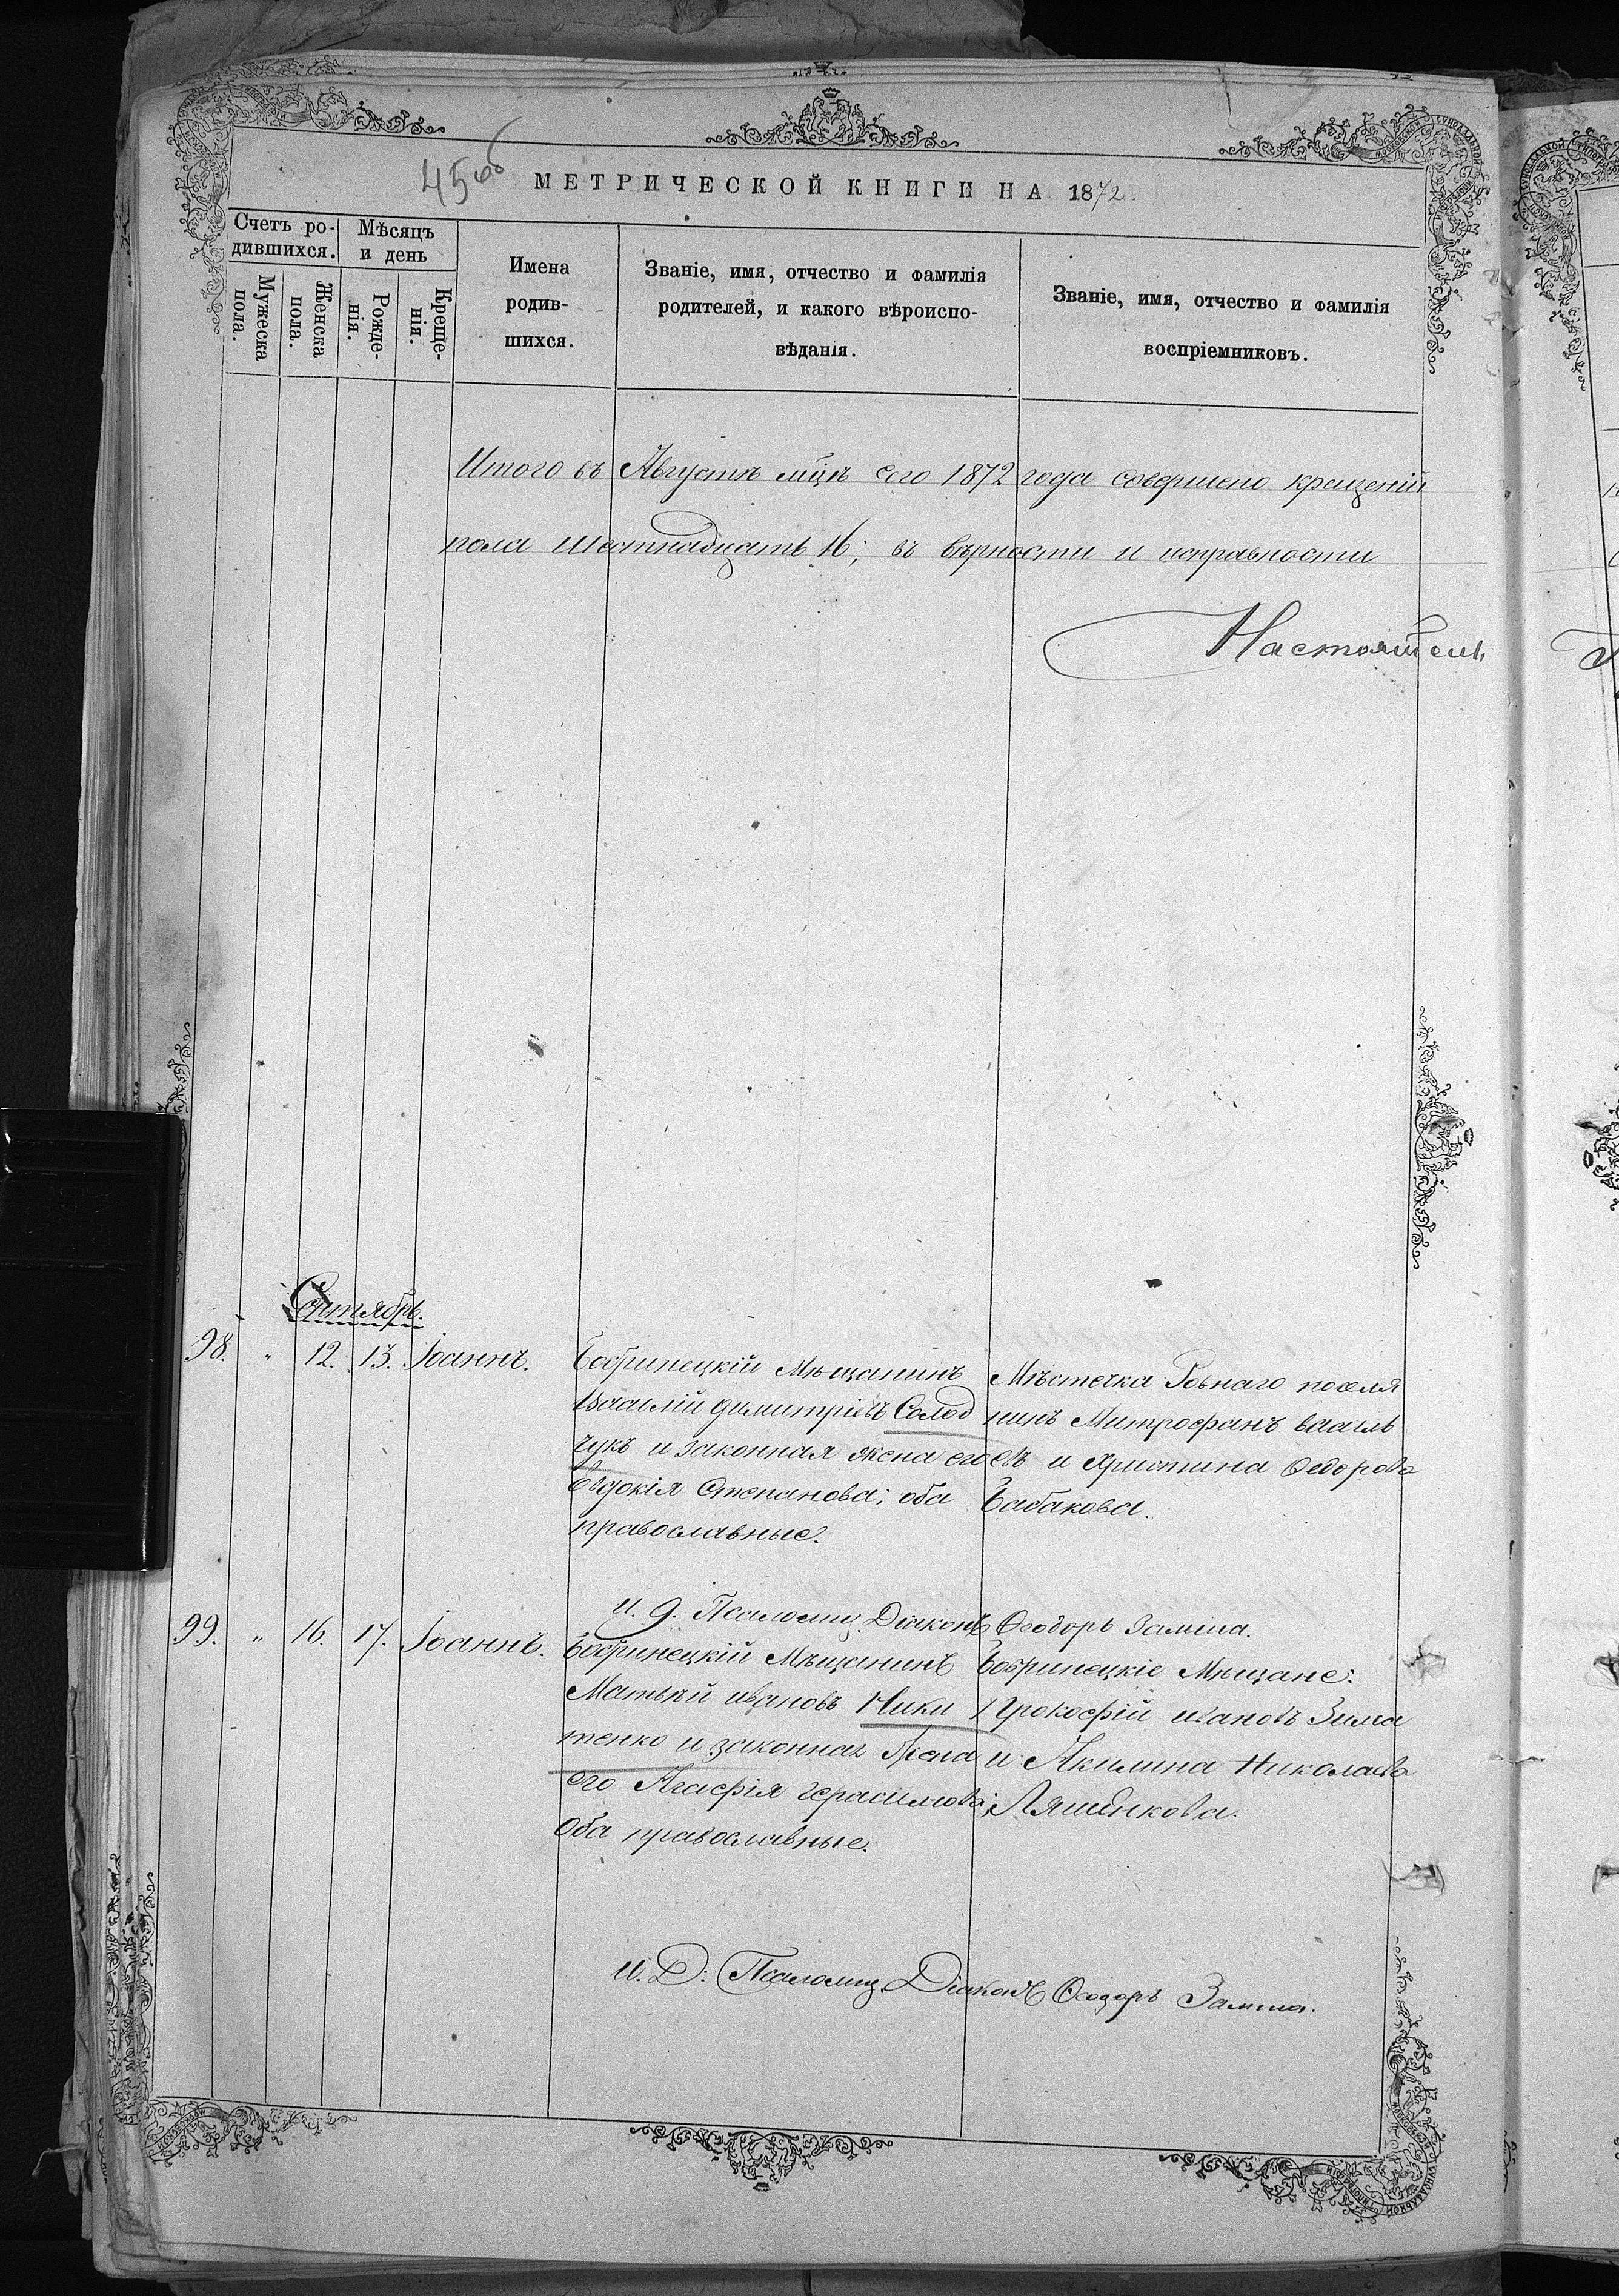 45об
МЕТРИЧЕСКОЙ КНИГИ НА 1872.
Счетъ ро-
дившихся.
Мѣсяцъ
и день
Мужеска
пола.
Женска
пола.
Рожде-
нія.
Креще-
нія.
Имена
родив-
шихся.
Званіе, имя, отчество и фамилія
родителей, и какого вѣроиспо-
вѣданія.
Званіе, имя, отчество и фамилія
воспріемниковъ.
Итого въ Августѣ мцѣ сего 1872 года совершено крещеній
пола шестнадцать 16; въ вѣрности и исправности
Настоятель
Сентябрь.
98. " 12. 13. Іоаннъ.
Бобринецкій Мѣщанинъ
Василій Димитріевъ Солод
чукъ и законная жена его
Евдокія Степанова; оба
православные.
Мѣстечка Ровнаго поселя
нинъ Митрофанъ Василь
евъ и Христина Ѳедорова
Бабакова.
И. д. Псаломщ. Діаконъ Ѳеодоръ Замша.
99. " 16. 17. Іоаннъ.
Бобринецкій Мѣщанинъ
Матвѣй Ивановъ Ники
тенко и законная жена
его Агафія Герасимова;
Оба православные.
Бобринецкіе Мѣщане:
Прокофій Ивановъ Зима
и Акилина Николаева
Ляшенкова.
И. Д: Псаломщ. Діаконъ Ѳеодоръ Замша.